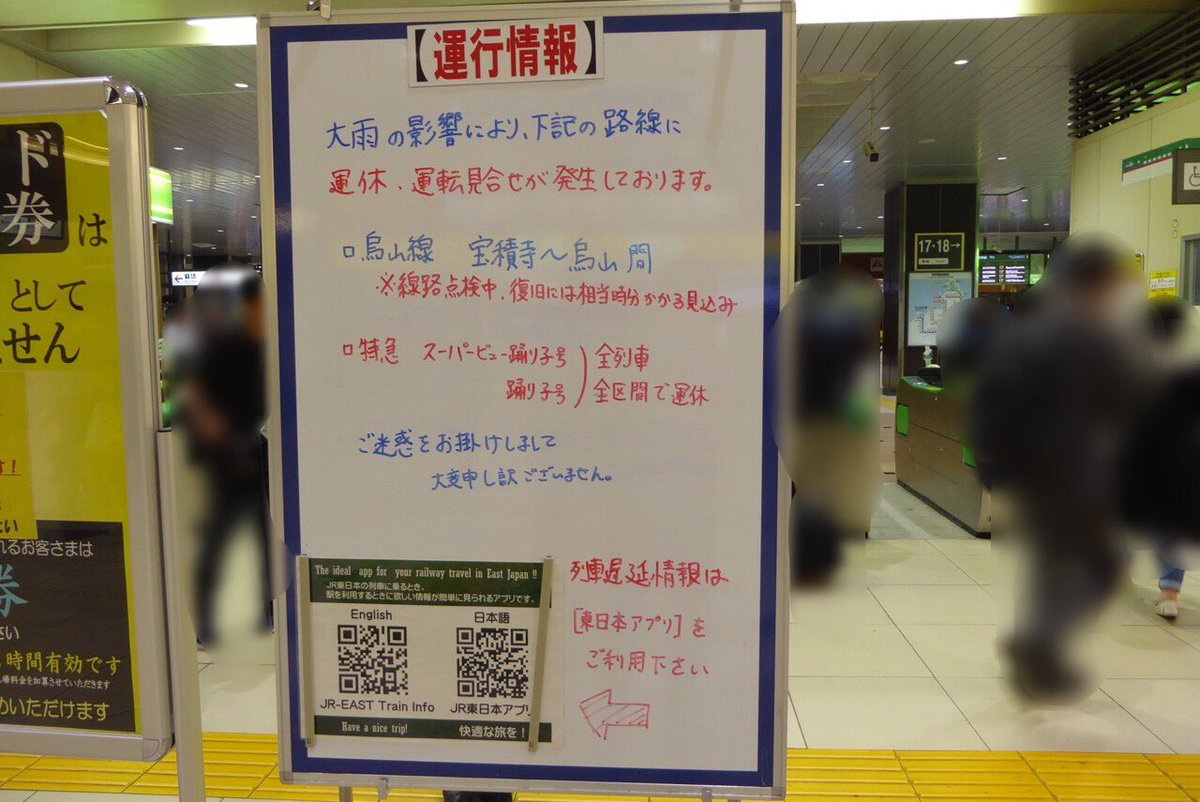 【運行情報】
大雨の影響により、下記の路線に
運休、運転見合せが発生しております。
□烏山線 宝積寺～烏山間
※線路点検中、復旧には相当時分かかる見込み
□特急 スーパービュー踊り子号 全列車
踊り子号 全区間で運休
ご迷惑をお掛けしまして
大変申し訳ございません。
The ideal app for your railway travel in East Japan !!
JR東日本の列車に乗るとき、
駅を利用するときに欲しい情報が簡単に見られるアプリです。
English 日本語
JR-EAST Train Info JR東日本アプリ
Have a nice trip! 快適な旅を！
列車遅延情報は
[東日本アプリ]を
ご利用下さい
ド
券は
として
せん
れるお客さまは
券
さい
時間有効です
場料金を加算させていただきます
めいただけます
17・18→